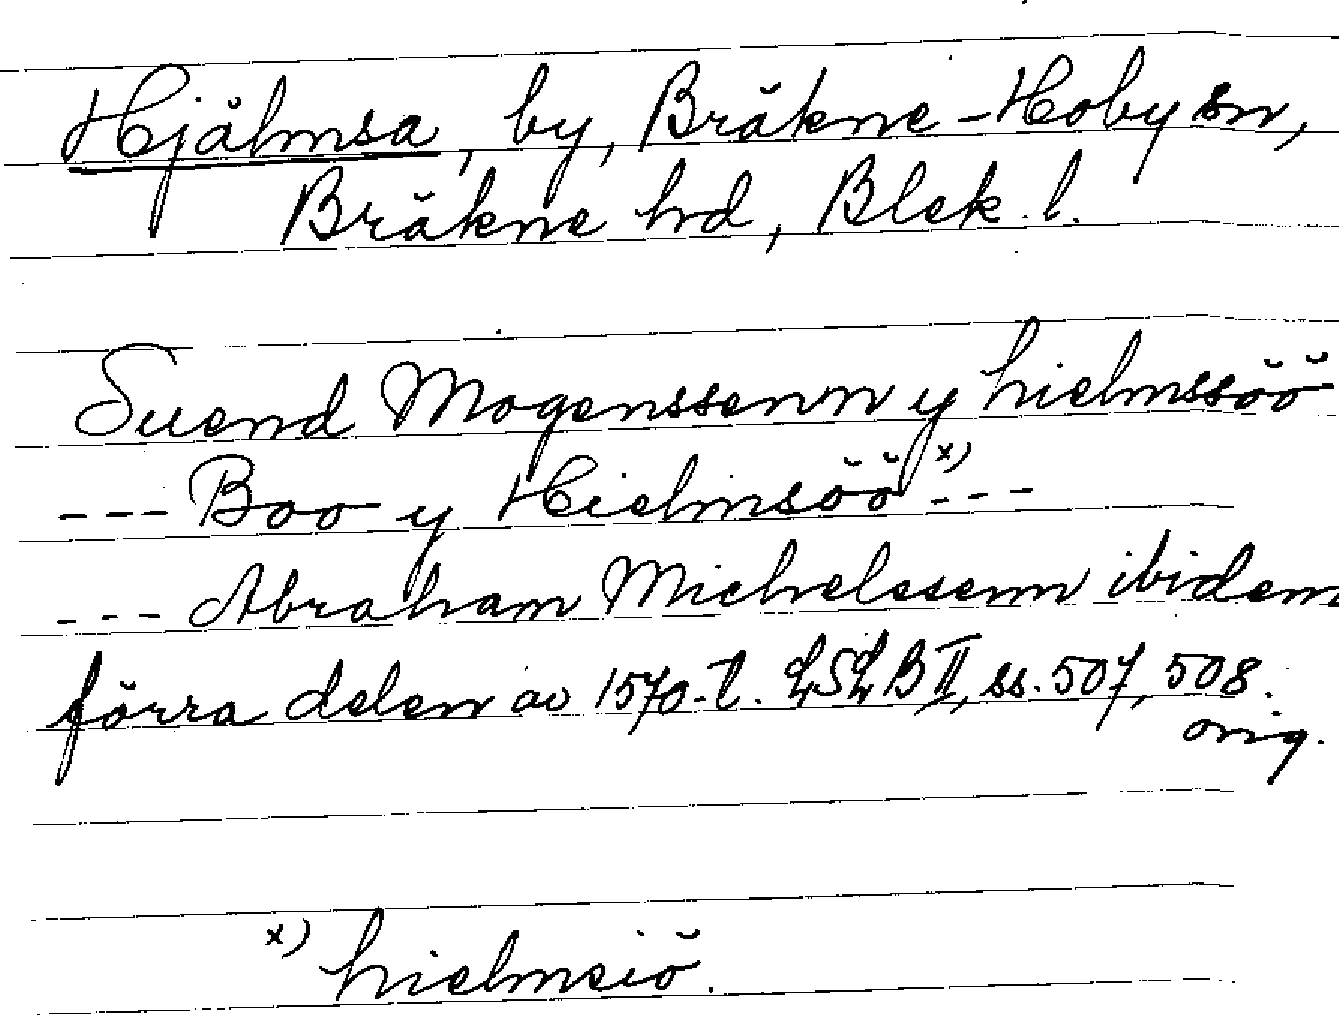 Hjälmsa, by, Bräkne-Hoby sn,
Bräkne hd, Blek. l.
Suend Mogenssenn y hielmssöö
--- Boo y Hielmsöö x) ---
--- Abraham Michelssenn ibidem
förra delen av 1570-t. LSLB II, ss. 507, 508.
orig.
x) hielmsiö.